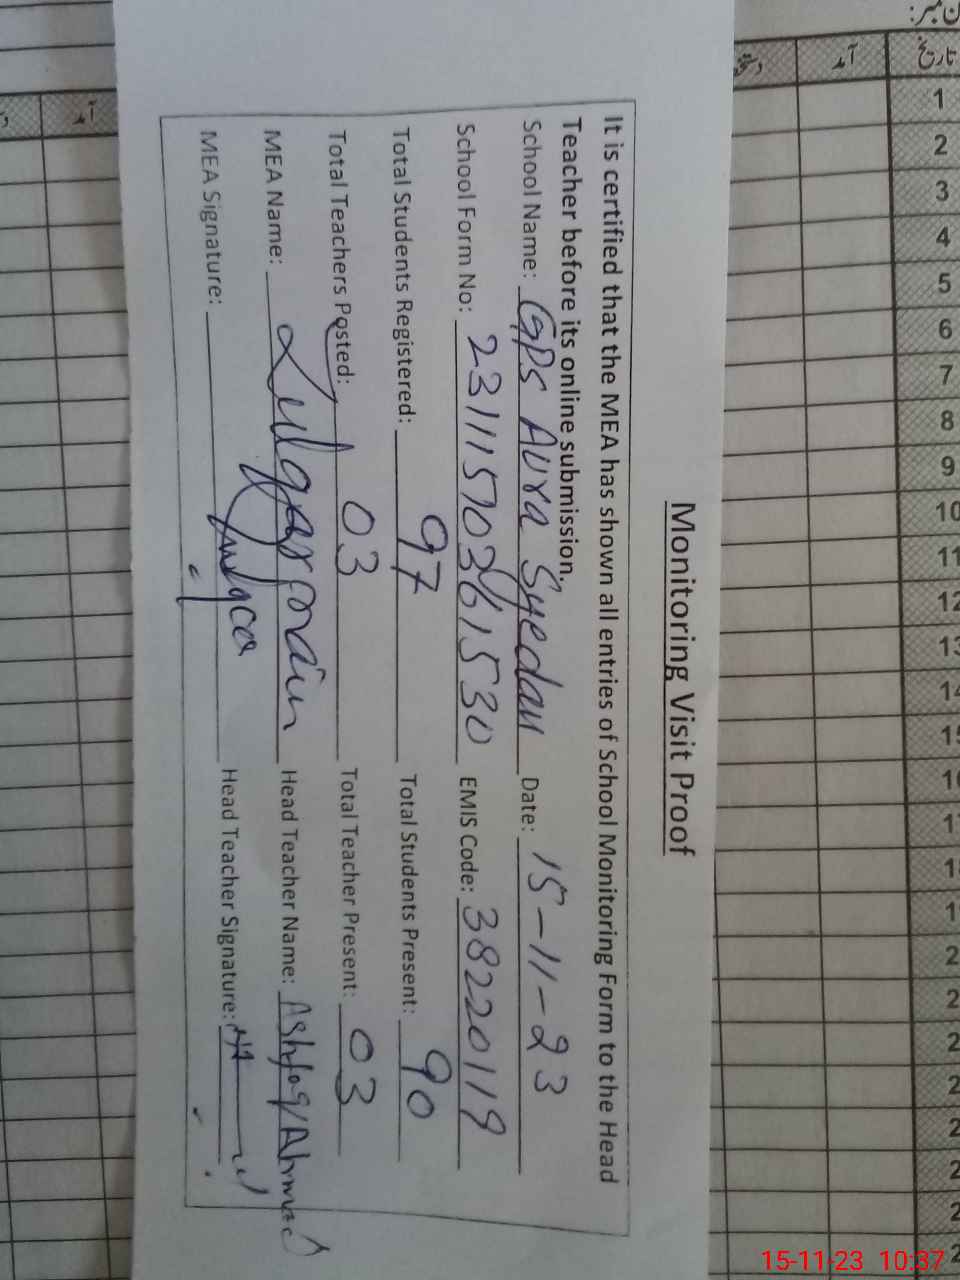 Monitoring Visit Proof
It is certified that the MEA has shown all entries of School Monitoring Form to the Head
Teacher before its online submission.
School Name: GPS Aura Syedan Date: 15-11-23
School Form No: EMIS Code: 38220119
Total Students Registered: 97 Total Students Present: 90
Total Teachers Posted: 03 Total Teacher Present: 03
MEA Name: Head Teacher Name: Ashfaq Ahmed
MEA Signature: Head Teacher Signature:
آمد
1
2
3
4
5
6
7
8
9
10
11
12
13
15-11-23 10:37